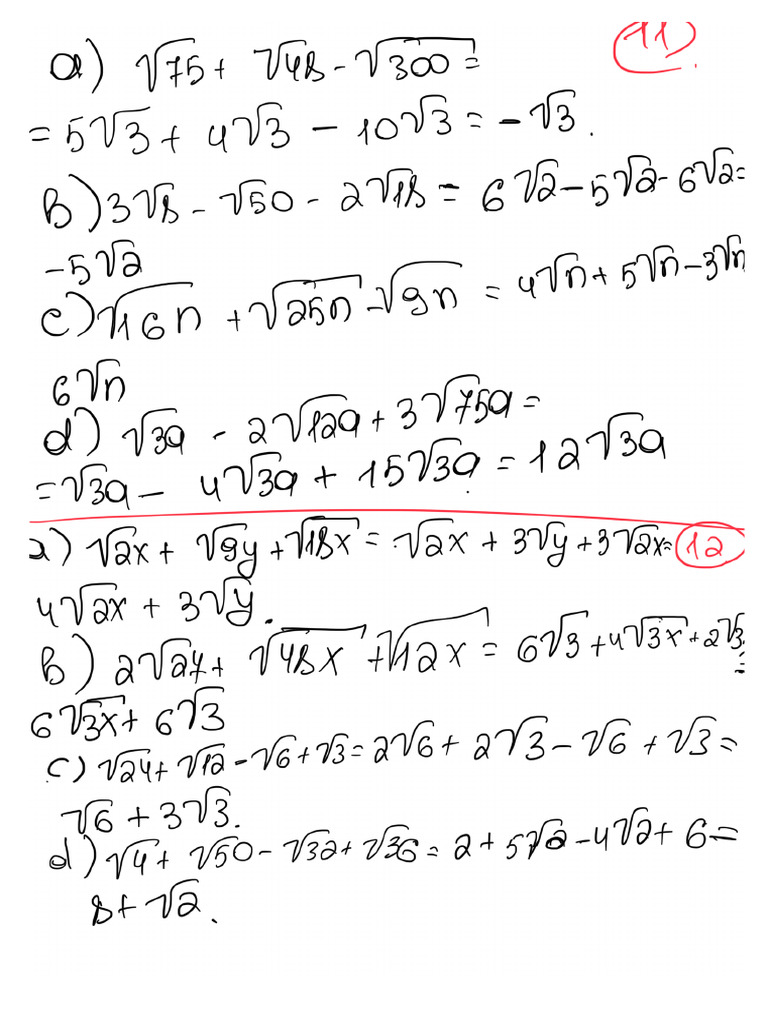 a) √75 + √48 - √300 = 11
= 5√3 + 4√3 - 10√3 = -√3.
b) 3√8 - √50 - 2√18 = 6√2 - 5√2 - 6√2 =
-5√2
c) √16n + √25n - √9n = 4√n + 5√n - 3√n
6√n
d) √3a - 2√12a + 3√75a =
= √3a - 4√3a + 15√3a = 12√3a
a) √2x + √9y + √18x = √2x + 3√y + 3√2x = 12
4√2x + 3√y.
b) 2√27 + √48x + √12x = 6√3 + 4√3x + 2√3
=
6√3x + 6√3
c) √24 + √12 - √6 + √3 = 2√6 + 2√3 - √6 + √3 =
√6 + 3√3.
d) √4 + √50 - √32 + √36 = 2 + 5√2 - 4√2 + 6 =
8 + √2.